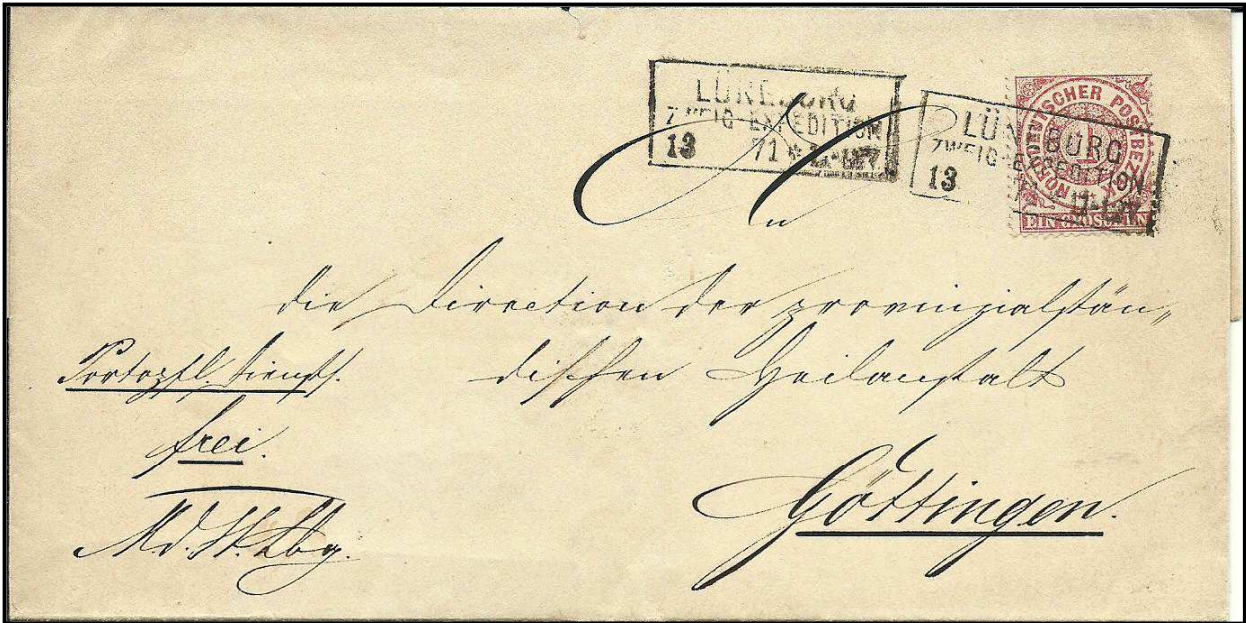 LÜNEBURG
ZWEIG-EXPEDITION
13 71
LÜNEBURG
ZWEIG-EXPEDITION
13
NORDDEUTSCHER POSTBEZIRK
1
EIN GROSCHEN
An
die Direction der provinzialstän„
dischen Heilanstalt
Göttingen.
Portopfl. Diensts.
frei.
M.d.St.Lbg.